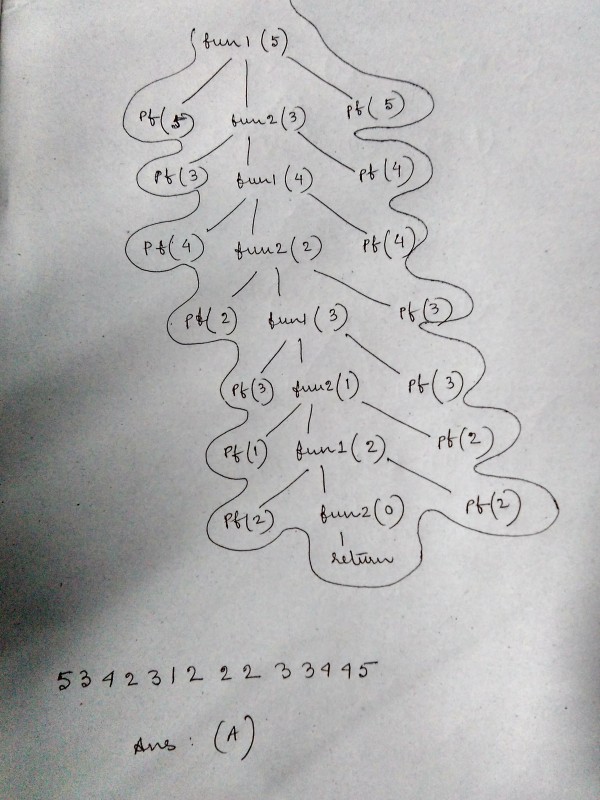 fun1(5)
pf(5) fun2(3) pf(5)
pf(3) fun1(4) pf(4)
pf(4) fun2(2) pf(4)
pf(2) fun1(3) pf(3)
pf(3) fun2(1) pf(3)
pf(1) fun1(2) pf(2)
pf(2) fun2(0) pf(2)
return
5 3 4 2 3 1 2 2 2 3 3 4 4 5
Ans: (A)